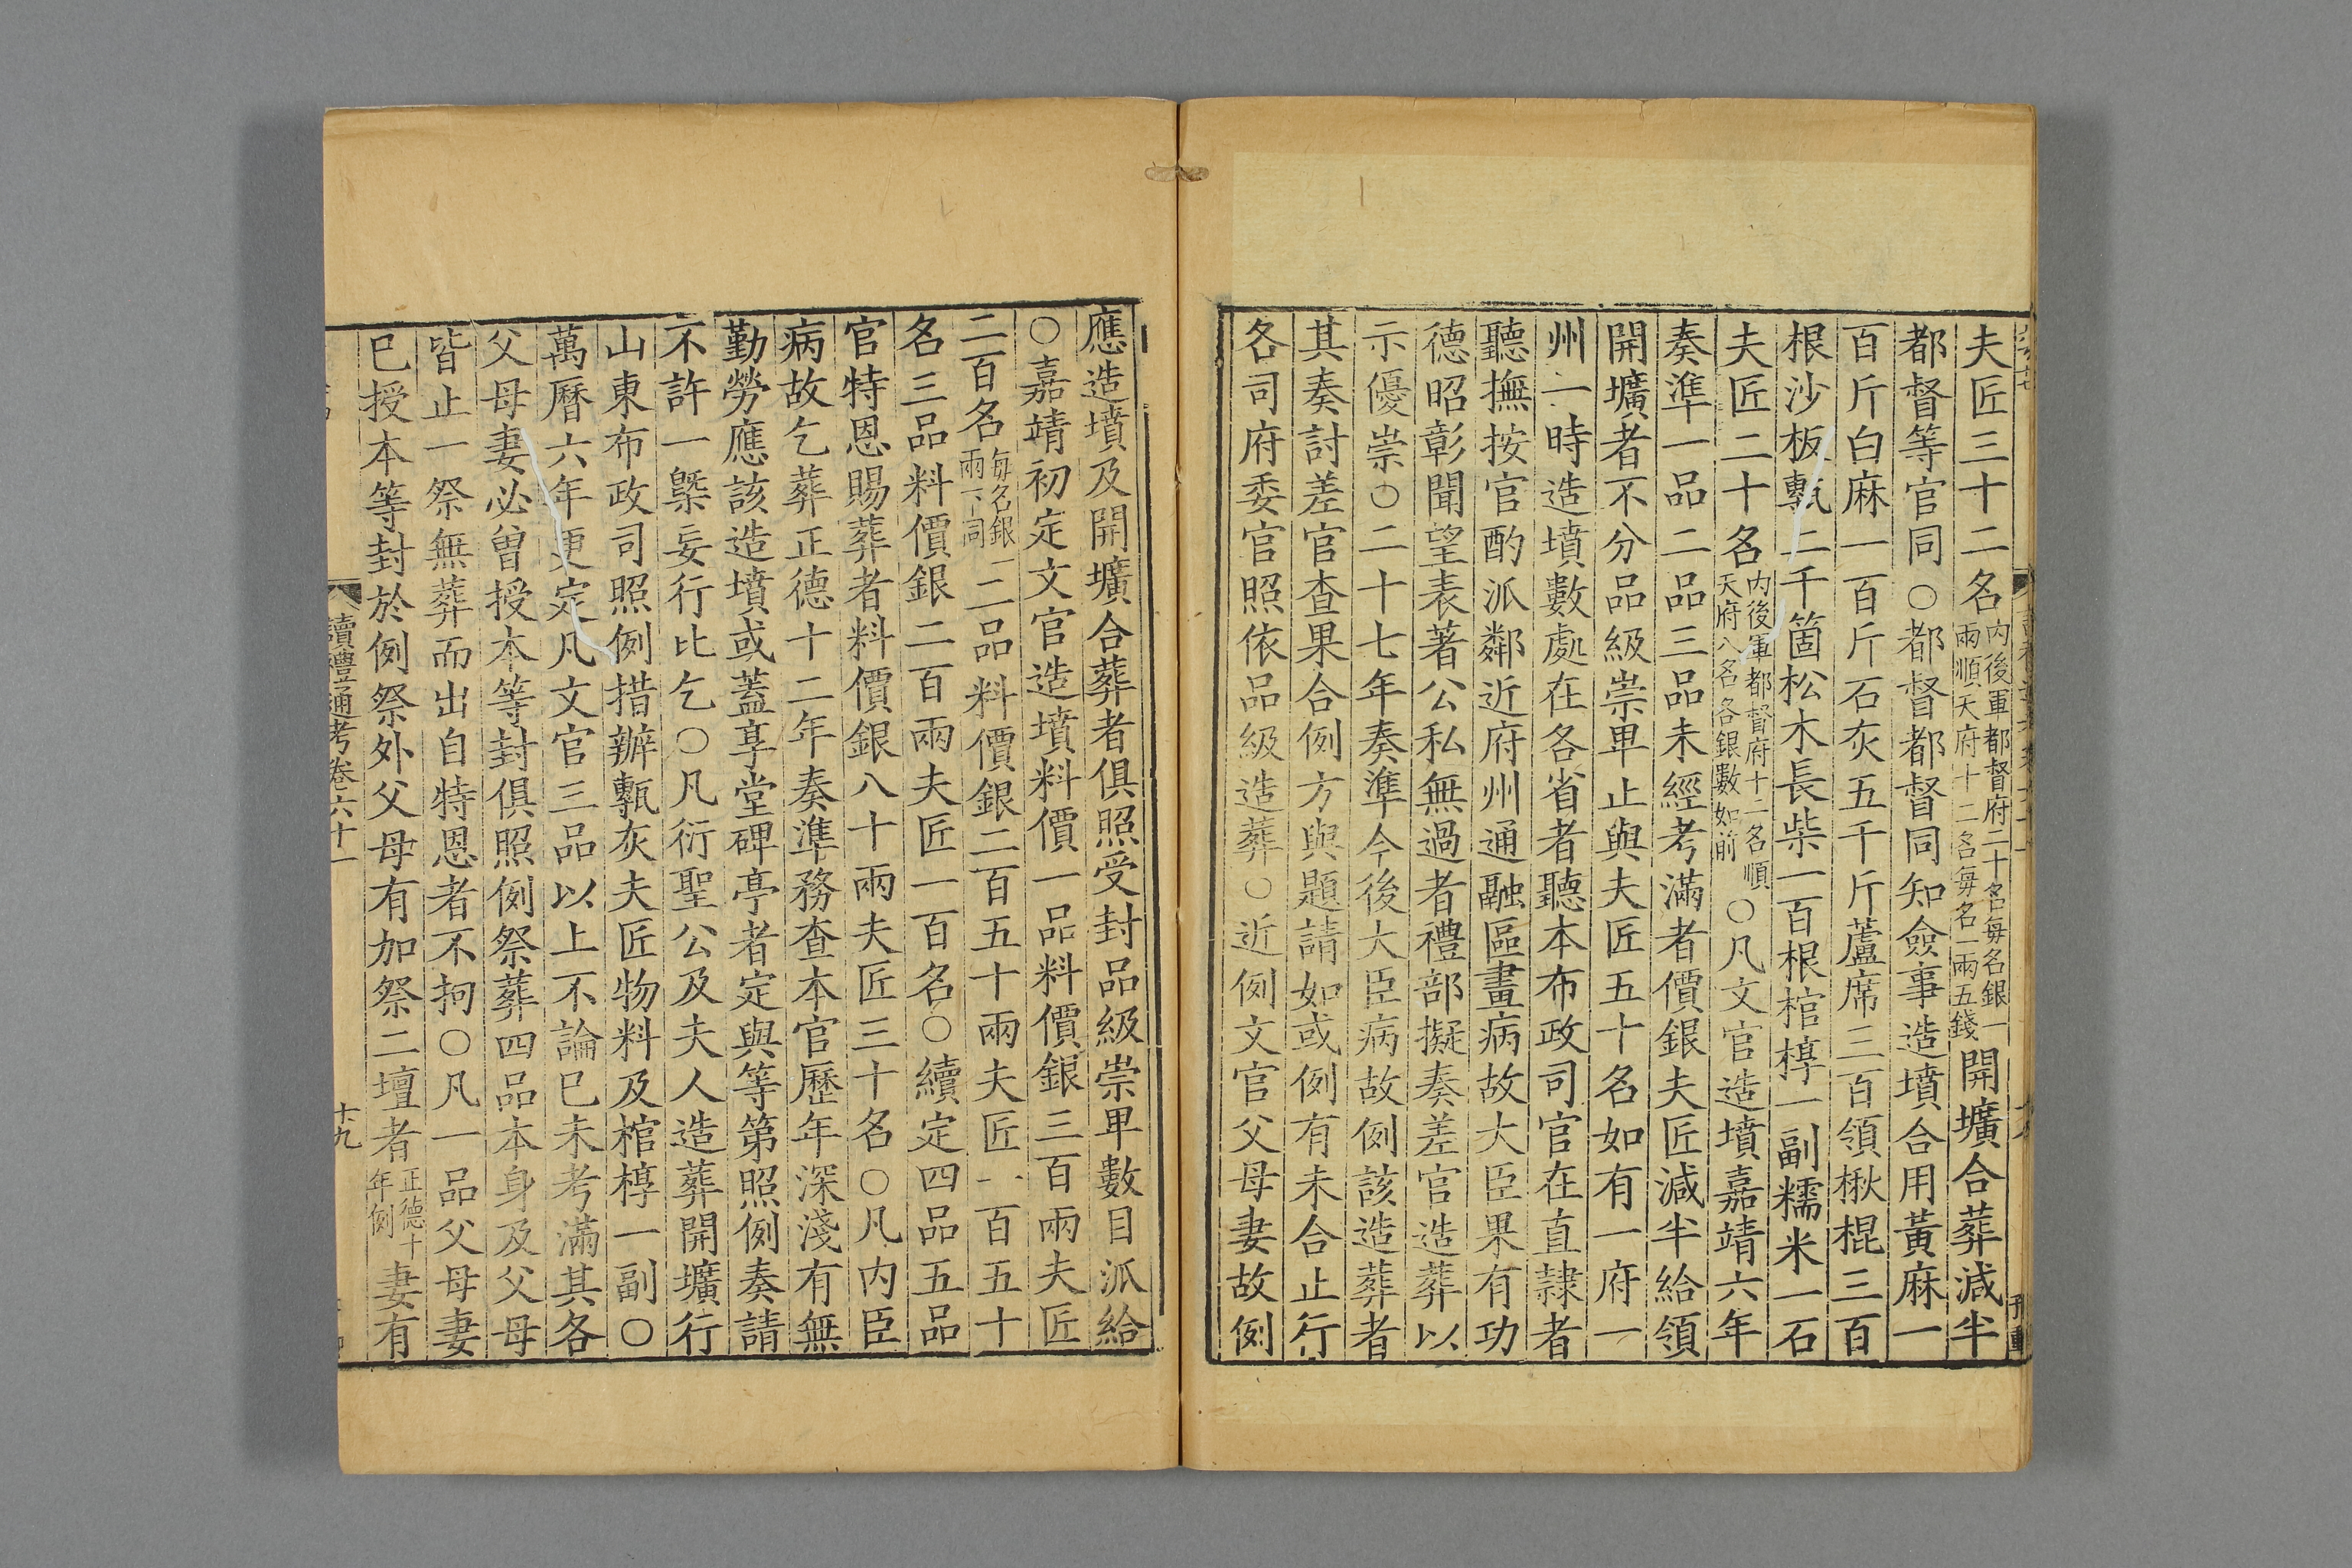 夫匠三十二名内後軍都督府二十名每名銀一兩順天府十二名每名一兩五錢開壙合葬減半
都督等官同○都督都督同知僉事造墳合用黃麻一
百斤白麻一百斤石灰五千斤蘆席三百領楸棍三百
根沙板甎二千箇松木長柴一百根棺槨一副糯米一石
夫匠二十名内後軍都督府十二名順天府八名各銀數如前○凡文官造墳嘉靖六年
奏準一品二品三品未經考滿者價銀夫匠減半給領
開壙者不分品級崇卑止與夫匠五十名如有一府一
州一時造墳數處在各省者聽本布政司官在直隸者
聽撫按官酌派鄰近府州通融區畫病故大臣果有功
德昭彰聞望表著公私無過者禮部擬奏差官造葬以
示優崇○二十七年奏準今後大臣病故例該造葬者
其奏討差官查果合例方與題請如或例有未合止行
各司府委官照依品級造葬○近例文官父母妻故例
應造墳及開壙合葬者俱照受封品級崇卑數目派給
○嘉靖初定文官造墳料價一品料價銀三百兩夫匠
二百名每名銀一兩下同二品料價銀二百五十兩夫匠一百五十
名三品料價銀二百兩夫匠一百名○續定四品五品
官特恩賜葬者料價銀八十兩夫匠三十名○凡内臣
病故乞葬正德十二年奏準務查本官歷年深淺有無
勤勞應該造墳或蓋享堂碑亭者定與等第照例奏請
不許一槩妄行比乞○凡衍聖公及夫人造葬開壙行
山東布政司照例措辦甎灰夫匠物料及棺槨一副○
萬曆六年更定凡文官三品以上不論已未考滿其各
父母妻必曾授本等封俱照例祭葬四品本身及父母
皆止一祭無葬而出自特恩者不拘○凡一品父母妻
已授本等封於例祭外父母有加祭二壇者正德十年例妻有
讀禮通考卷六十一
十九